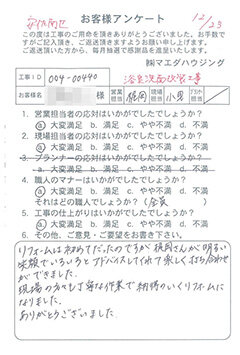 お客様アンケート
12/23
この度は工事のご用命を頂きありがとうございました。お手数で
すがご記入頂き、ご返送頂きますようお願い申し上げます。
ご返送頂いた方から、毎月抽選で感謝品を進呈いたします。
㈱マエダハウジング
工事ID 004-00440 浴室洗面改修工事
お客様名 様 営業担当 現場担当 小男
1. 営業担当者の応対はいかがでしたでしょうか？
a 大変満足 b. 満足 c. やや不満 d. 不満
2. 現場担当者の応対はいかがでしたでしょうか？
a 大変満足 b. 満足 c. やや不満 d. 不満
3. プランナーの応対はいかがでしたでしょうか？
a. 大変満足 b. 満足 c. やや不満 d. 不満
4. 職人のマナーはいかがでしたでしょうか？
a 大変満足 b. 満足 c. やや不満 d. 不満
それはどの職人でしょうか？（全員）
5. 工事の仕上がりはいかがでしたでしょうか？
a 大変満足 b. 満足 c. やや不満 d. 不満
6. その他、ご意見・ご要望をお書き下さい。
リフォームは初めてだったのですが 岡さんが明るい
笑顔でいろいろとアドバイスしてくれて楽しく打ち合わせ
ができました。
現場の方々も丁寧な作業で納得のいくリフォームに
なりました。
ありがとうございました。